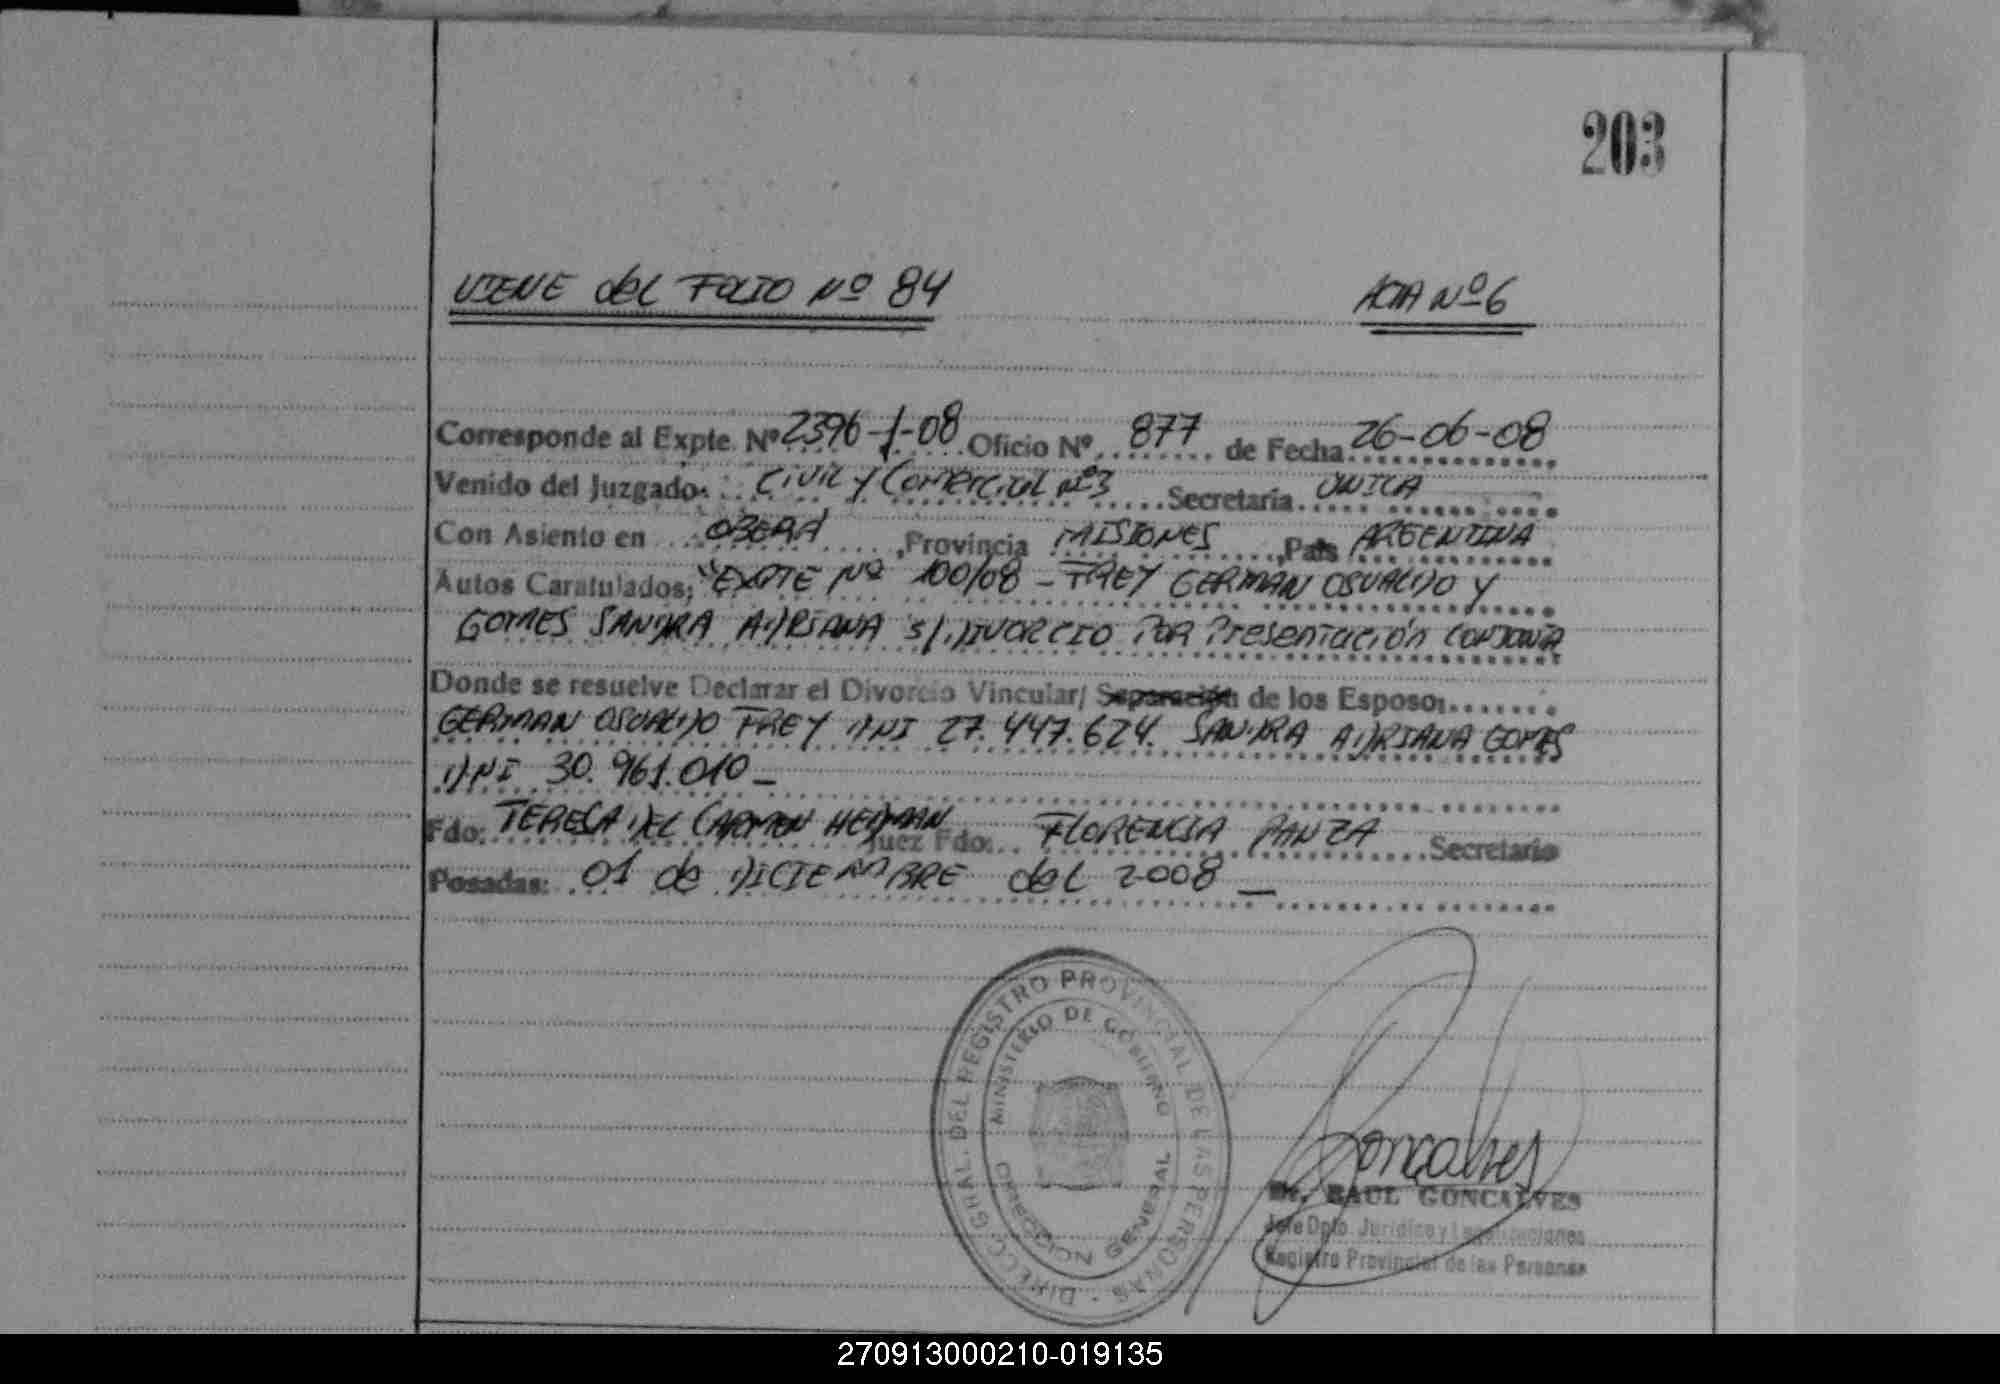 203
VIENE del FOLIO Nº 84 ACTA Nº 6
Corresponde al Expte. Nº 2396-f-08 Oficio Nº 877 de Fecha 26-06-08
Venido del Juzgado: Civil y Comercial nº3 Secretaria UNICA
Con Asiento en OBERA, Provincia MISIONES, País ARGENTINA
Autos Caratulados; "EXPTE Nº 100/08 - FREY GERMAN OSVALDO Y
GOMES SANDRA ADRIANA s/ DIVORCIO POR Presentación CONJUNTA
Donde se resuelve Declarar el Divorcio Vincular/ Separación de los Esposo:
GERMAN OSVALDO FREY DNI 27.447.624. SANDRA ADRIANA GOMES
DNI 30.961.010 _
Fdo: TERESA DEL CARMEN HEDMAN Juez Fdo: FLORENCIA PANZA Secretario
Posadas: 01 de DICIEMBRE del 2008 _
DIRECC. GRAL. DEL REGISTRO PROVINCIAL DE LAS PERSONAS
MINISTERIO DE GOBIERNO
DIRECCION GENERAL
Goncalves
Dr. RAUL GONCALVES
Jefe Dpto. Jurídico y Legalizaciones
Registro Provincial de las Personas
270913000210-019135